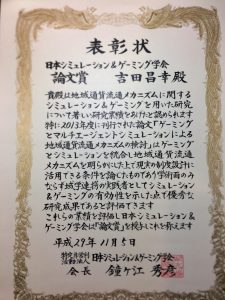 表彰状
日本シミュレーション&ゲーミング学会
論文賞 吉田昌幸殿
貴殿は地域通貨流通メカニズムに関する
シミュレーション&ゲーミングを用いた研究
について著しい研究業績をあげたと認められます
特に2013年度に刊行された論文「ゲーミング
とマルチエージェントシミュレーションによる
地域通貨流通メカニズムの検討」はゲーミング
とシミュレーションを統合し地域通貨流通
メカニズムを明らかにした上で現実の制度設計に
活用できる条件を論じたものであり学術面のみ
ならず域学連携の実践者としてシミュレーション&
ゲーミングの有効性を示した点で優秀な
研究成果であると評価できます
これらの業績を評価し日本シミュレーション&
ゲーミング学会は「論文賞」を授与しこれを称えます
平成29年11月5日
特定非営利活動法人 日本シミュレーション&ゲーミング学会
会長 鐘ケ江秀彦